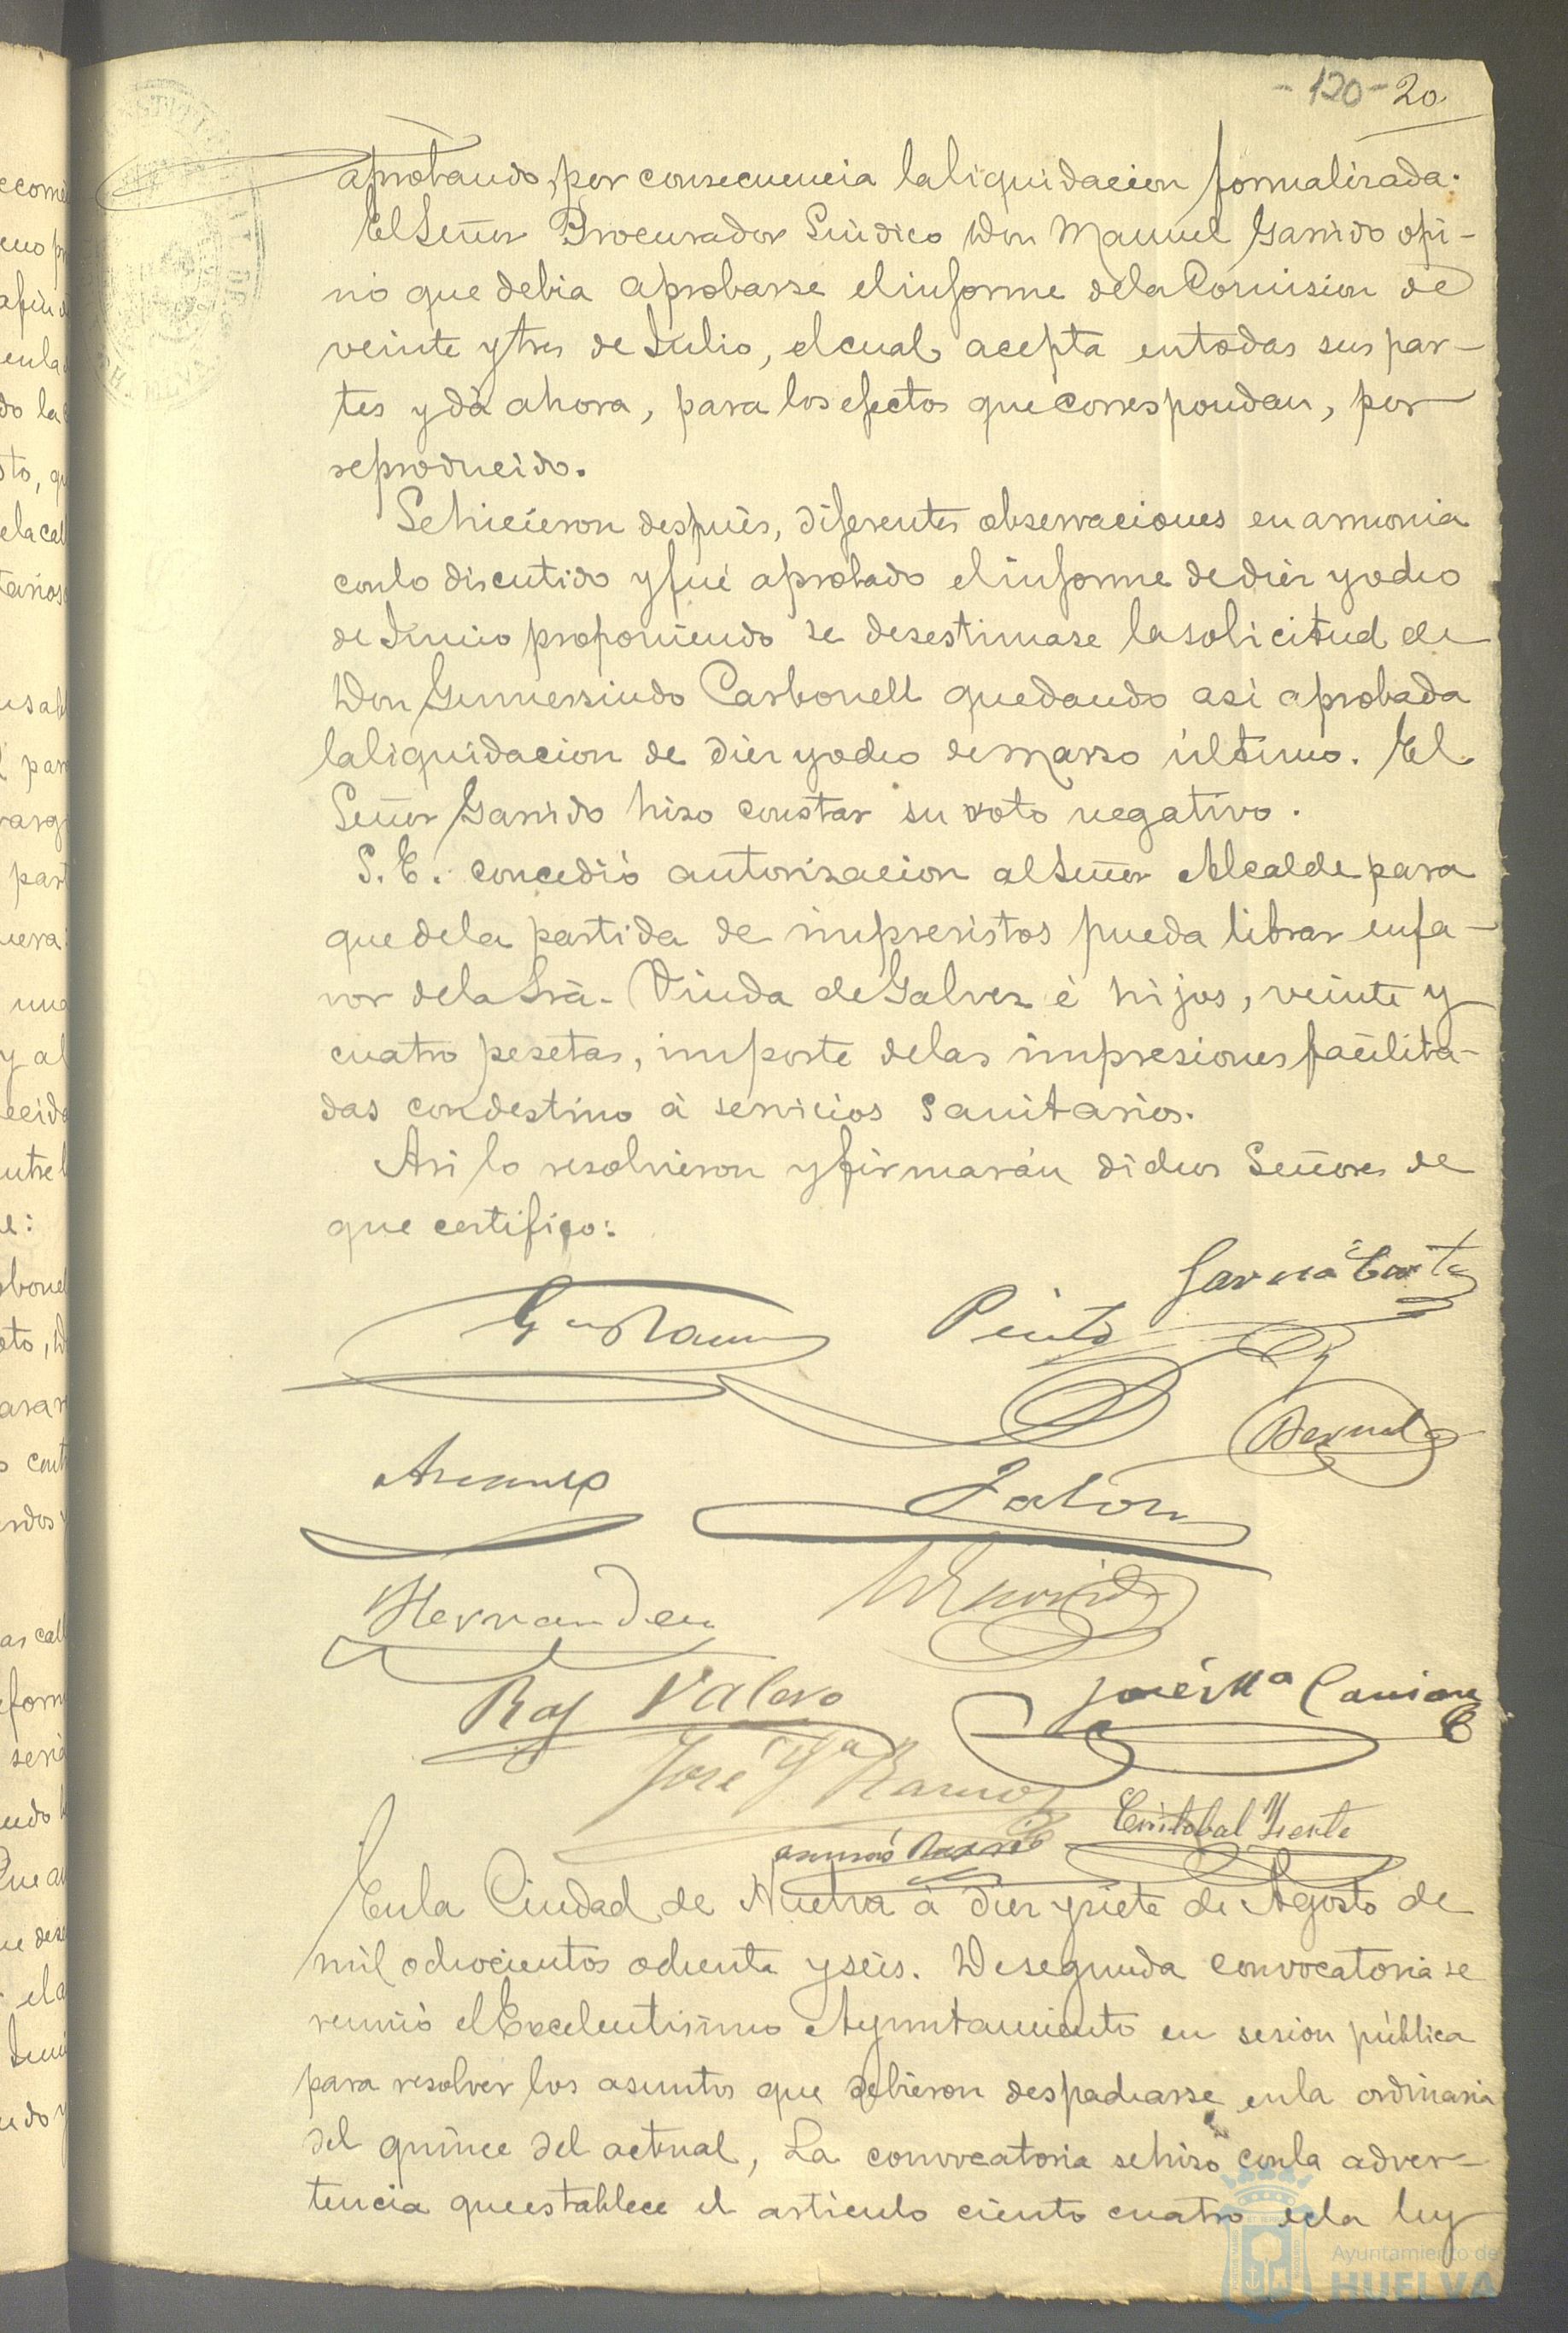 - 120 - 20
aprobando, por consecuencia la liquidacion formalizada.
El Señor Procurador Sindico Don Manuel Garrido opi-
nó que debia aprobarse el informe de la Comision de
veinte y tres de Julio, el cual acepta en todas sus par-
tes y dá ahora, para los efectos que correspondan, por
reproducido.
Se hicieron despues, diferentes observaciones en armonia
con lo discutido y fué aprobado el informe de diez y ocho
de Junio proponiendo se desestimase la solicitud de
Don Gumersindo Carbonell quedando asi aprobada
la liquidacion de diez y ocho de Marzo último. El
Señor Garrido hizo constar su voto negativo.
S. E. concedió autorizacion al Señor Alcalde para
que de la partida de imprevistos pueda librar en fa-
vor de la Sra. Viuda de Galvez é hijos, veinte y
cuatro pesetas, importe de las impresiones facilita-
das con destino á servicios sanitarios.
Asi lo resolvieron y firmarán dichos Señores de
que certifico:
Garcia Cort
Pinto
Bernal
Jalon
Hernandez
Raf Valero
José Mª
José Mª Ramos
Cristobal
En la Ciudad de Huelva á diez y siete de Agosto de
mil ochocientos ochenta y seis. De segunda convocatoria se
reunió el Excelentisimo Ayuntamiento en sesion pública
para resolver los asuntos que debieron despacharse en la ordinaria
del quince del actual, La convocatoria se hizo con la adver-
tencia que establece el articulo ciento cuatro de la ley
Ayuntamiento de
HUELVA